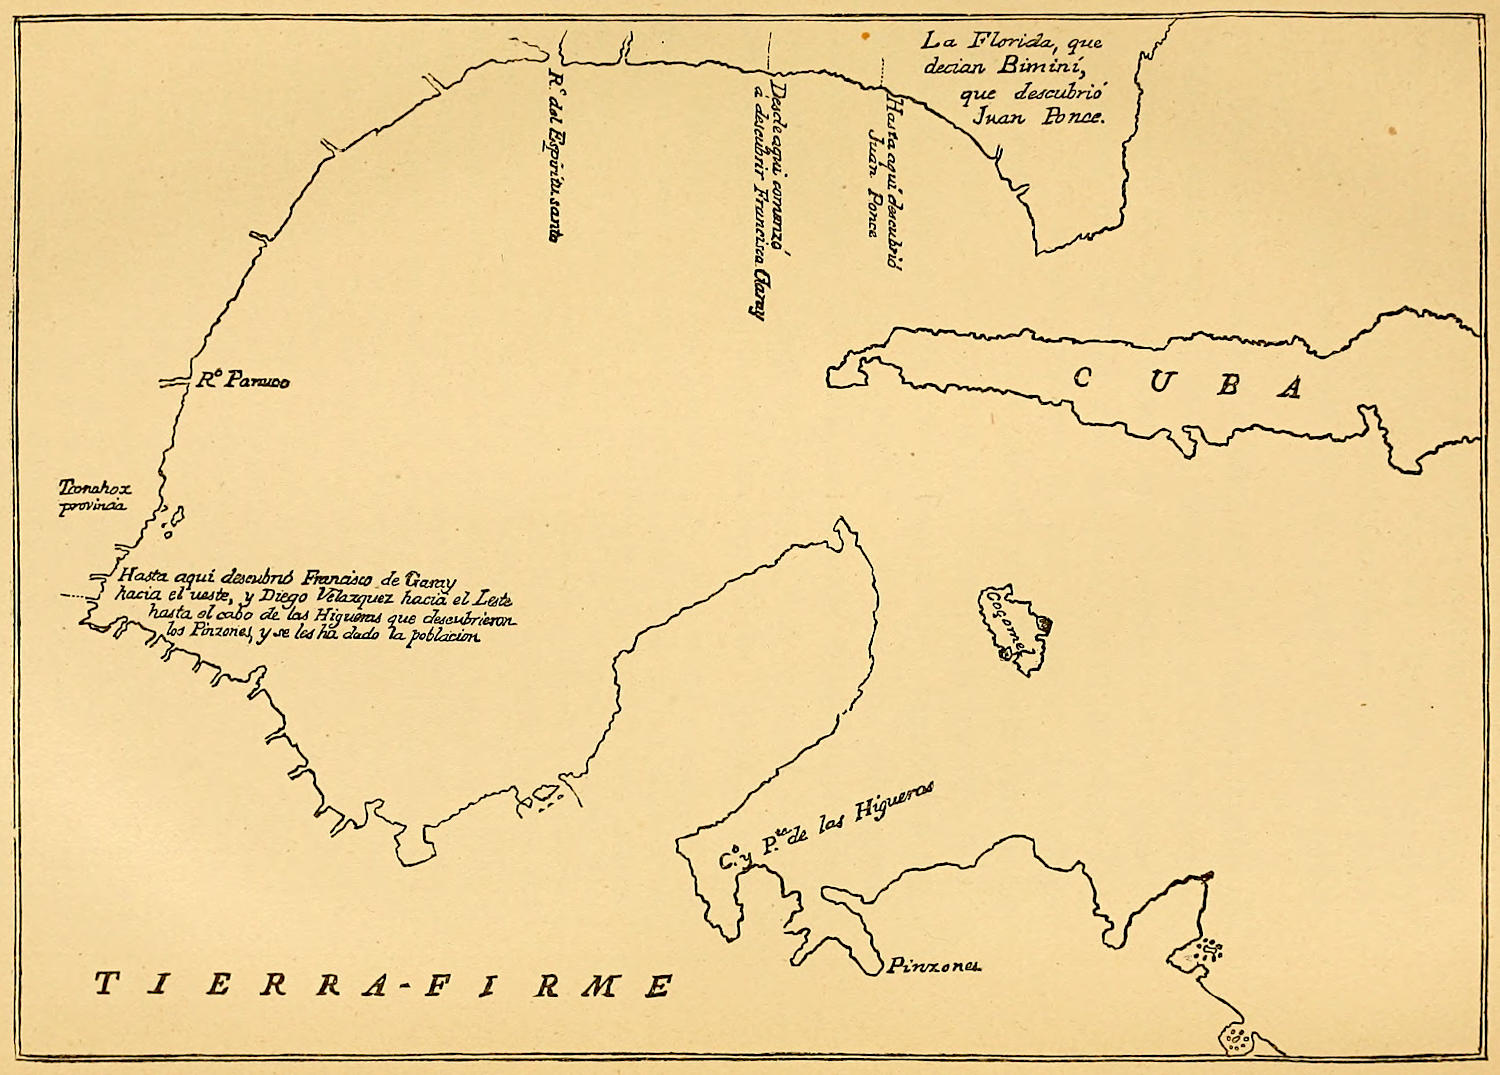 La Florida, que
decian Bimini,
que descubrió
Juan Ponce.
Rº del Espiritu santo
Desde aqui comenzó
á descubrir Francisco Garay
Hasta aquí descubrió
Juan Ponce
Rº Panuco
CUBA
Tronahox
provincia
Hasta aquí descubrió Francisco de Garay
hacia el ueste, y Diego Velazquez hacia el Leste
hasta el cabo de las Higueras que descubrieron
los Pinzones, y se les ha dado la poblacion
Coçomel
Cº y P.ta de las Higueras
Pinzones
TIERRA-FIRME